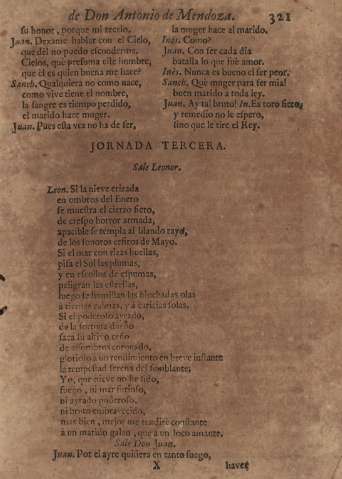 de Don Antonio de Mendoza. 321
su honor, porque mi recelo.
Juan. Dexame hablar con el Cielo,
que del no puedo esconderme.
Cielos, que presuma este hombre,
que èl es quien buena me hace?
Sanch. Qualquiera no como nace,
como vive tiene el nombre,
la sangre es tiempo perdido,
el marido hace muger.
Juan. Pues esta vez no ha de ser,
la muger hace al marido.
Inès. Como?
Juan. Con ser cada dia
batalla lo que fuè amor.
Inès. Nunca es bueno el ser peor.
Sanch. Què muger para ser mia!
buen marido à toda ley.
Juan. Ay tal bruto! In. Es toro fiero,
y remedio no le espero,
sino que le tire el Rey.
JORNADA TERCERA.
Sale Leonor.
Leon. Si la nieve erizada
en ombros del Enero
se muestra el cierzo fiero,
de crespo horror armada,
apacible se templa al blando rayo,
de los sonoros cefiros de Mayo.
Si el mar con alas huellas,
pisa el Sol las plumas,
y en escollos de espumas,
peligran las estrellas,
luego se humillan las hinchadas olas
à tiernas calmas, y à caricias solas.
Si el poderoso ayrado,
de la fortuna dueño
saca su altivo ceño
de assombros coronado,
glorioso à un rendimiento en breve instante
la tempestad serena del semblante;
Yo, que nieve no he sido,
fuego, ni mar furioso,
ni ayrado poderoso,
ni bruto embravecido,
mas bien, mejor me rendirè constante
à un marido galan, que à un loco amante.
Sale Don Juan.
Juan. Por el ayre quisiera en tanto fuego,
X haver